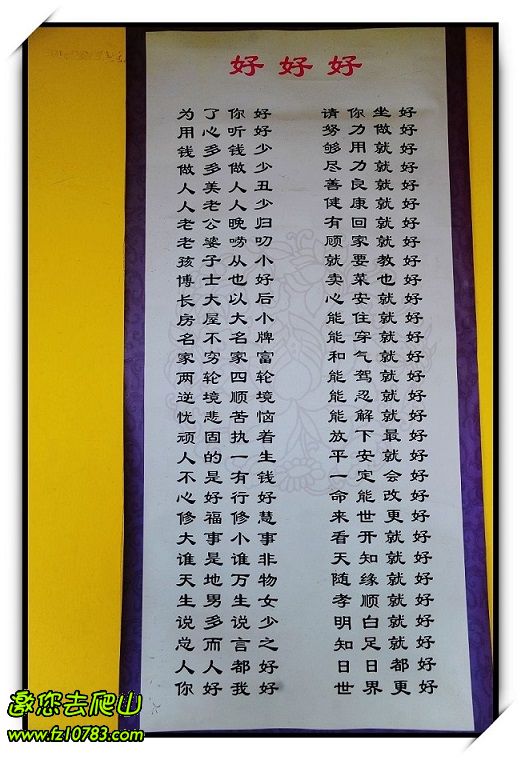 好好好
为了你好 请你坐好
用心听好 努力做好
钱多钱少 够用就好
做多做少 尽力就好
人美人丑 善良就好
人老人少 健康就好
老公晚归 有回就好
老婆唠叨 顾家就好
孩子从小 就要教好
博士也好 卖菜也好
长大以后 心安就好
房屋大小 能住就好
名不名牌 能穿就好
家穷家富 和气就好
两轮四轮 能驾就好
逆境顺境 能忍就好
忧悲苦恼 能解就好
顽固执着 放下最好
人的一生 平安就好
不是有钱 一定会好
心好行好 命能改好
修福修慧 来世更好
大事小事 看开就好
谁是谁非 天知就好
天地万物 随缘就好
生男生女 孝顺就好
说多说少 明白就好
总而言之 知足就好
人人都好 日日都好
你好我好 世界更好
邀您去爬山
www.fz10783.com